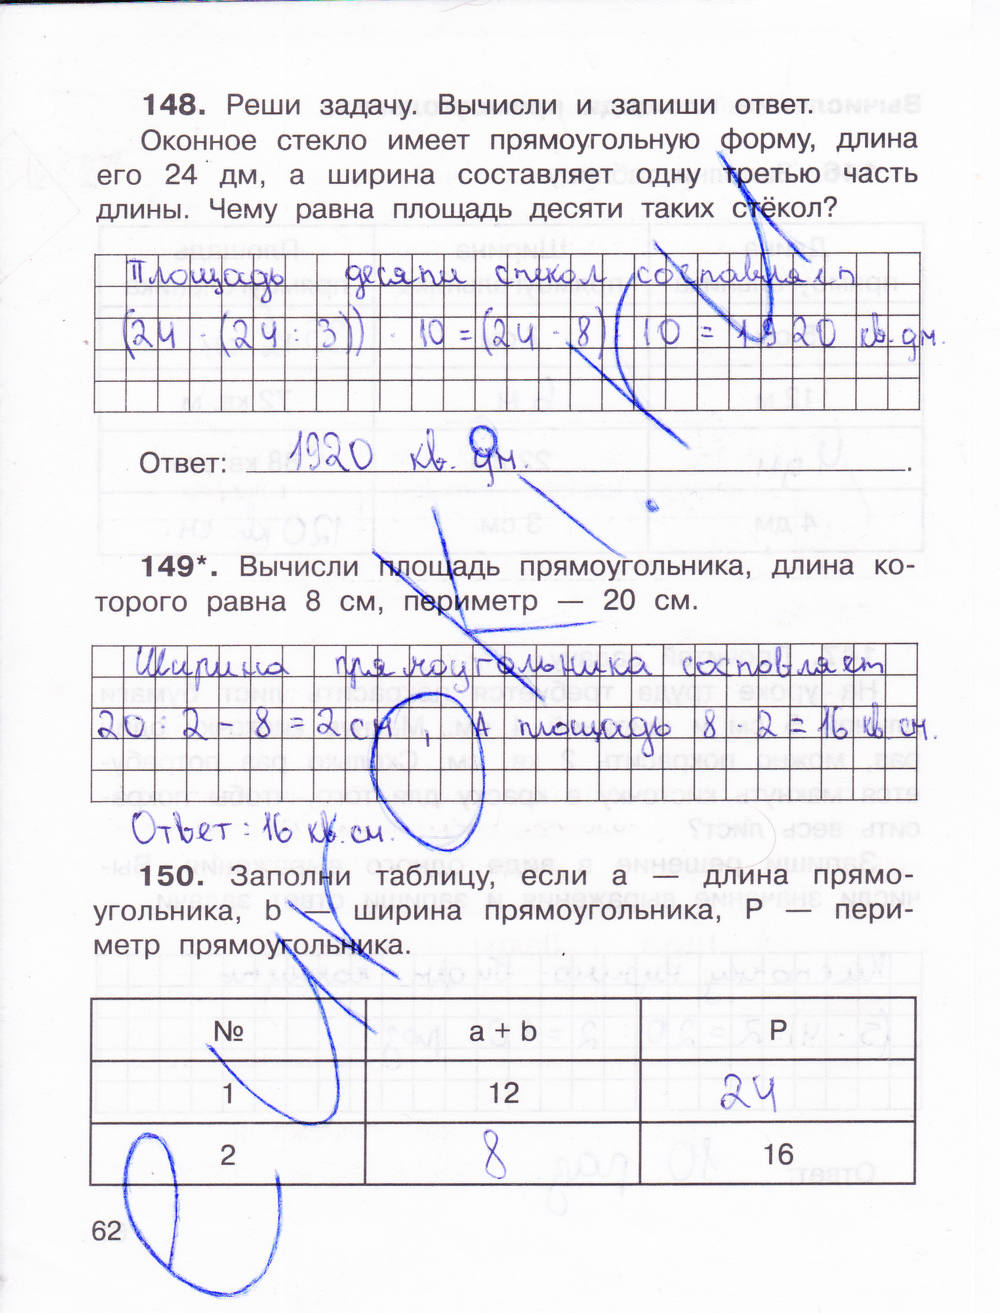 148. Реши задачу. Вычисли и запиши ответ.
Оконное стекло имеет прямоугольную форму, длина
его 24 дм, а ширина составляет одну третью часть
длины. Чему равна площадь десяти таких стёкол?
Площадь десяти стекол составляет
(24 · (24 : 3)) · 10 = (24 · 8) · 10 = 1920 кв. дм.
Ответ: 1920 кв. дм.
149*. Вычисли площадь прямоугольника, длина ко-
торого равна 8 см, периметр — 20 см.
Ширина прямоугольника составляет
20 : 2 - 8 = 2 см, А площадь 8 · 2 = 16 кв см.
Ответ: 16 кв. см.
150. Заполни таблицу, если a — длина прямо-
угольника, b — ширина прямоугольника, P — пери-
метр прямоугольника.
№ a + b P
1 12 24
2 8 16
62